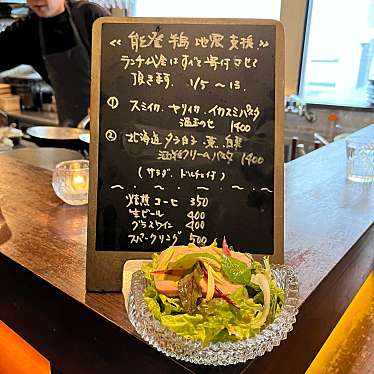 ≪ 能登半島 地震 支援 ≫
ランチ代金はすべて寄付させて
頂きます. 1/5 〜 13.
① スミイカ、ヤリイカ、イカスミパスタ
1400
② 北海道 タラ白子
クリームパスタ 1400
(サラダ、ドルチェ付)
コーヒ 350
生ビール 400
グラスワイン 400
スパークリング 500